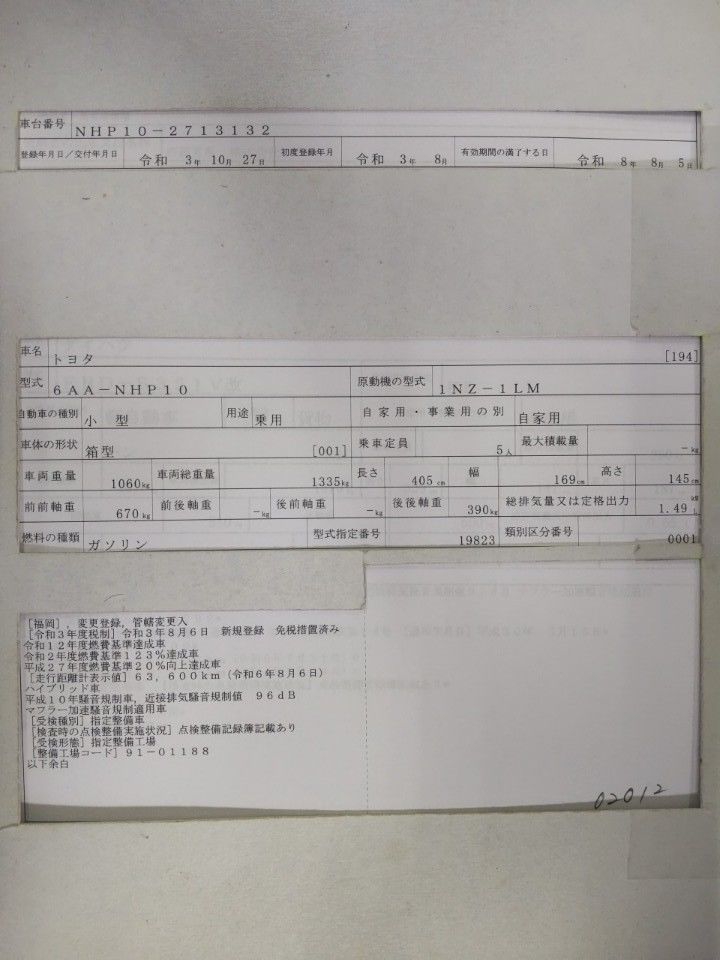 車台番号 NHP10-2713132
登録年月日／交付年月日 令和 3年 10月 27日 初度登録年月 令和 3年 8月 有効期間の満了する日 令和 8年 8月 5日
車名 トヨタ [194]
型式 6AA-NHP10 原動機の型式 1NZ-1LM
自動車の種別 小型 用途 乗用 自家用・事業用の別 自家用
車体の形状 箱型 [001] 乗車定員 5人 最大積載量 -kg
車両重量 1060kg 車両総重量 1335kg 長さ 405cm 幅 169cm 高さ 145cm
前前軸重 670kg 前後軸重 -kg 後前軸重 -kg 後後軸重 390kg 総排気量又は定格出力 1.49 kW L
燃料の種類 ガソリン 型式指定番号 19823 類別区分番号 0001
［福岡］，変更登録，管轄変更入
［令和3年度税制］令和3年8月6日 新規登録 免税措置済み
令和12年度燃費基準達成車
令和2年度燃費基準123％達成車
平成27年度燃費基準20％向上達成車
［走行距離計表示値］63，600km（令和6年8月6日）
ハイブリッド車
平成10年騒音規制車，近接排気騒音規制値 96dB
マフラー加速騒音規制適用車
［受検種別］指定整備車
［検査時の点検整備実施状況］点検整備記録簿記載あり
［受検形態］指定整備工場
［整備工場コード］91-01188
以下余白
02012